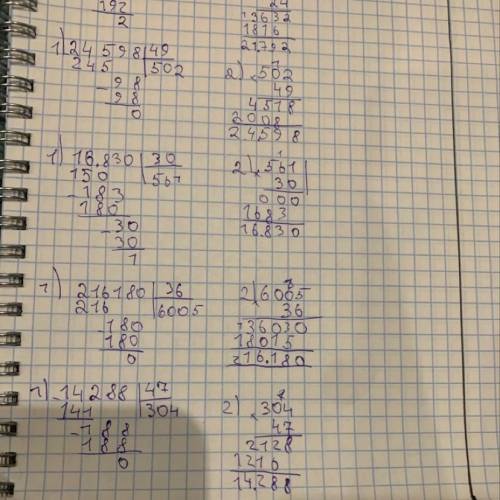 192
2
24
13632
1816
21.792
1) 24598 | 49
245 | 502
- 98
98
0
2) 502
49
4518
2008
24.598
1) 16.830 | 30
150 | 561
- 183
180
- 30
30
1
2) × 561
30
000
1683
16.830
1) 216180 | 36
216 | 6005
- 180
180
0
2) 6005
36
36030
18015
216.180
1) 14288 | 47
141 | 304
- 188
188
0
2) × 304
47
2128
1216
14.288